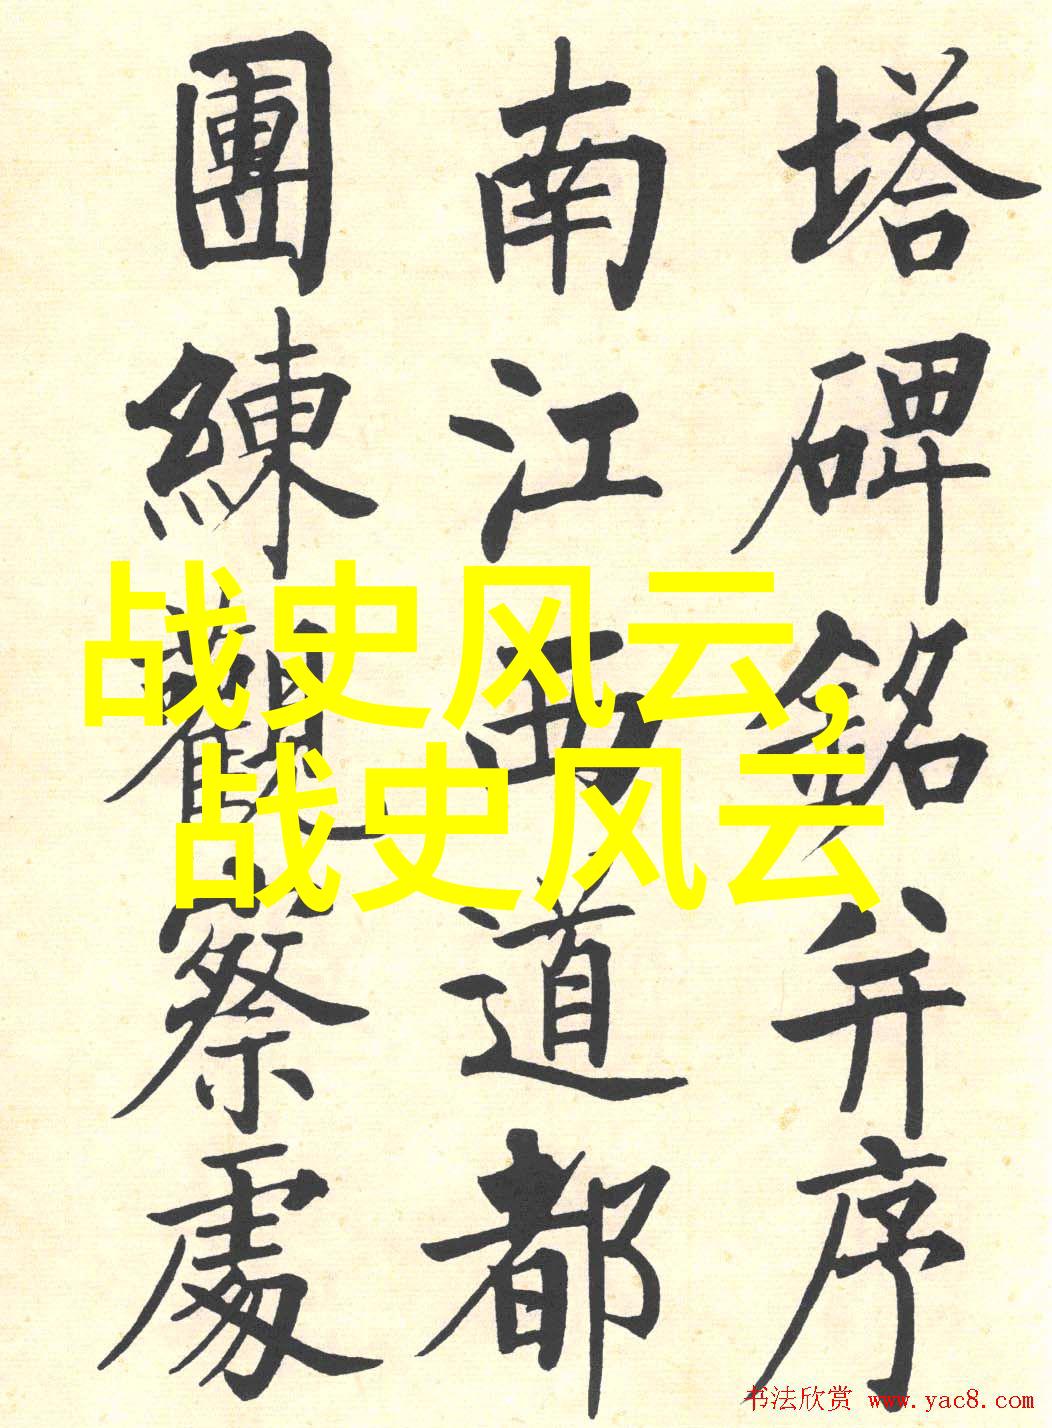 塔碑銘并序
南江西道都
團練觀察處
战史风云,
战史风云
书法欣赏 www.yac8.com